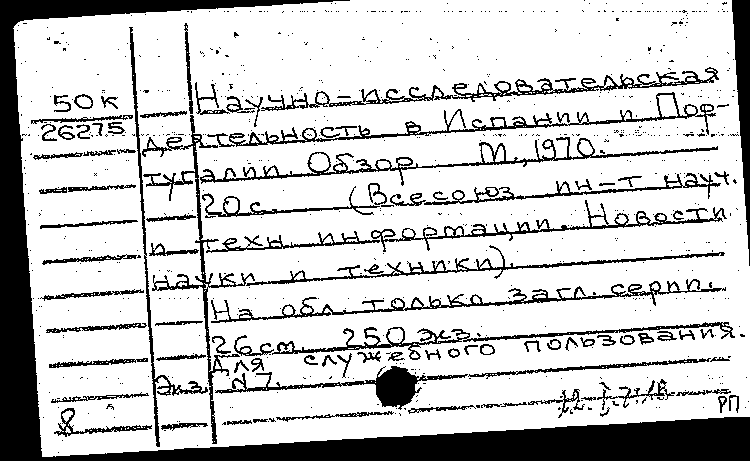 50к
26275
Научно-исследовательская
деятельность в Испании и Пор-
тугалии. Обзор М., 1970.
20с. (Всесоюз. ин-т науч.
и техн. информации. Новости
науки и техники).
На обл. только загл. серии.
26см. 250 экз.
Для служебного пользования.
Экз. №7.
8
РП